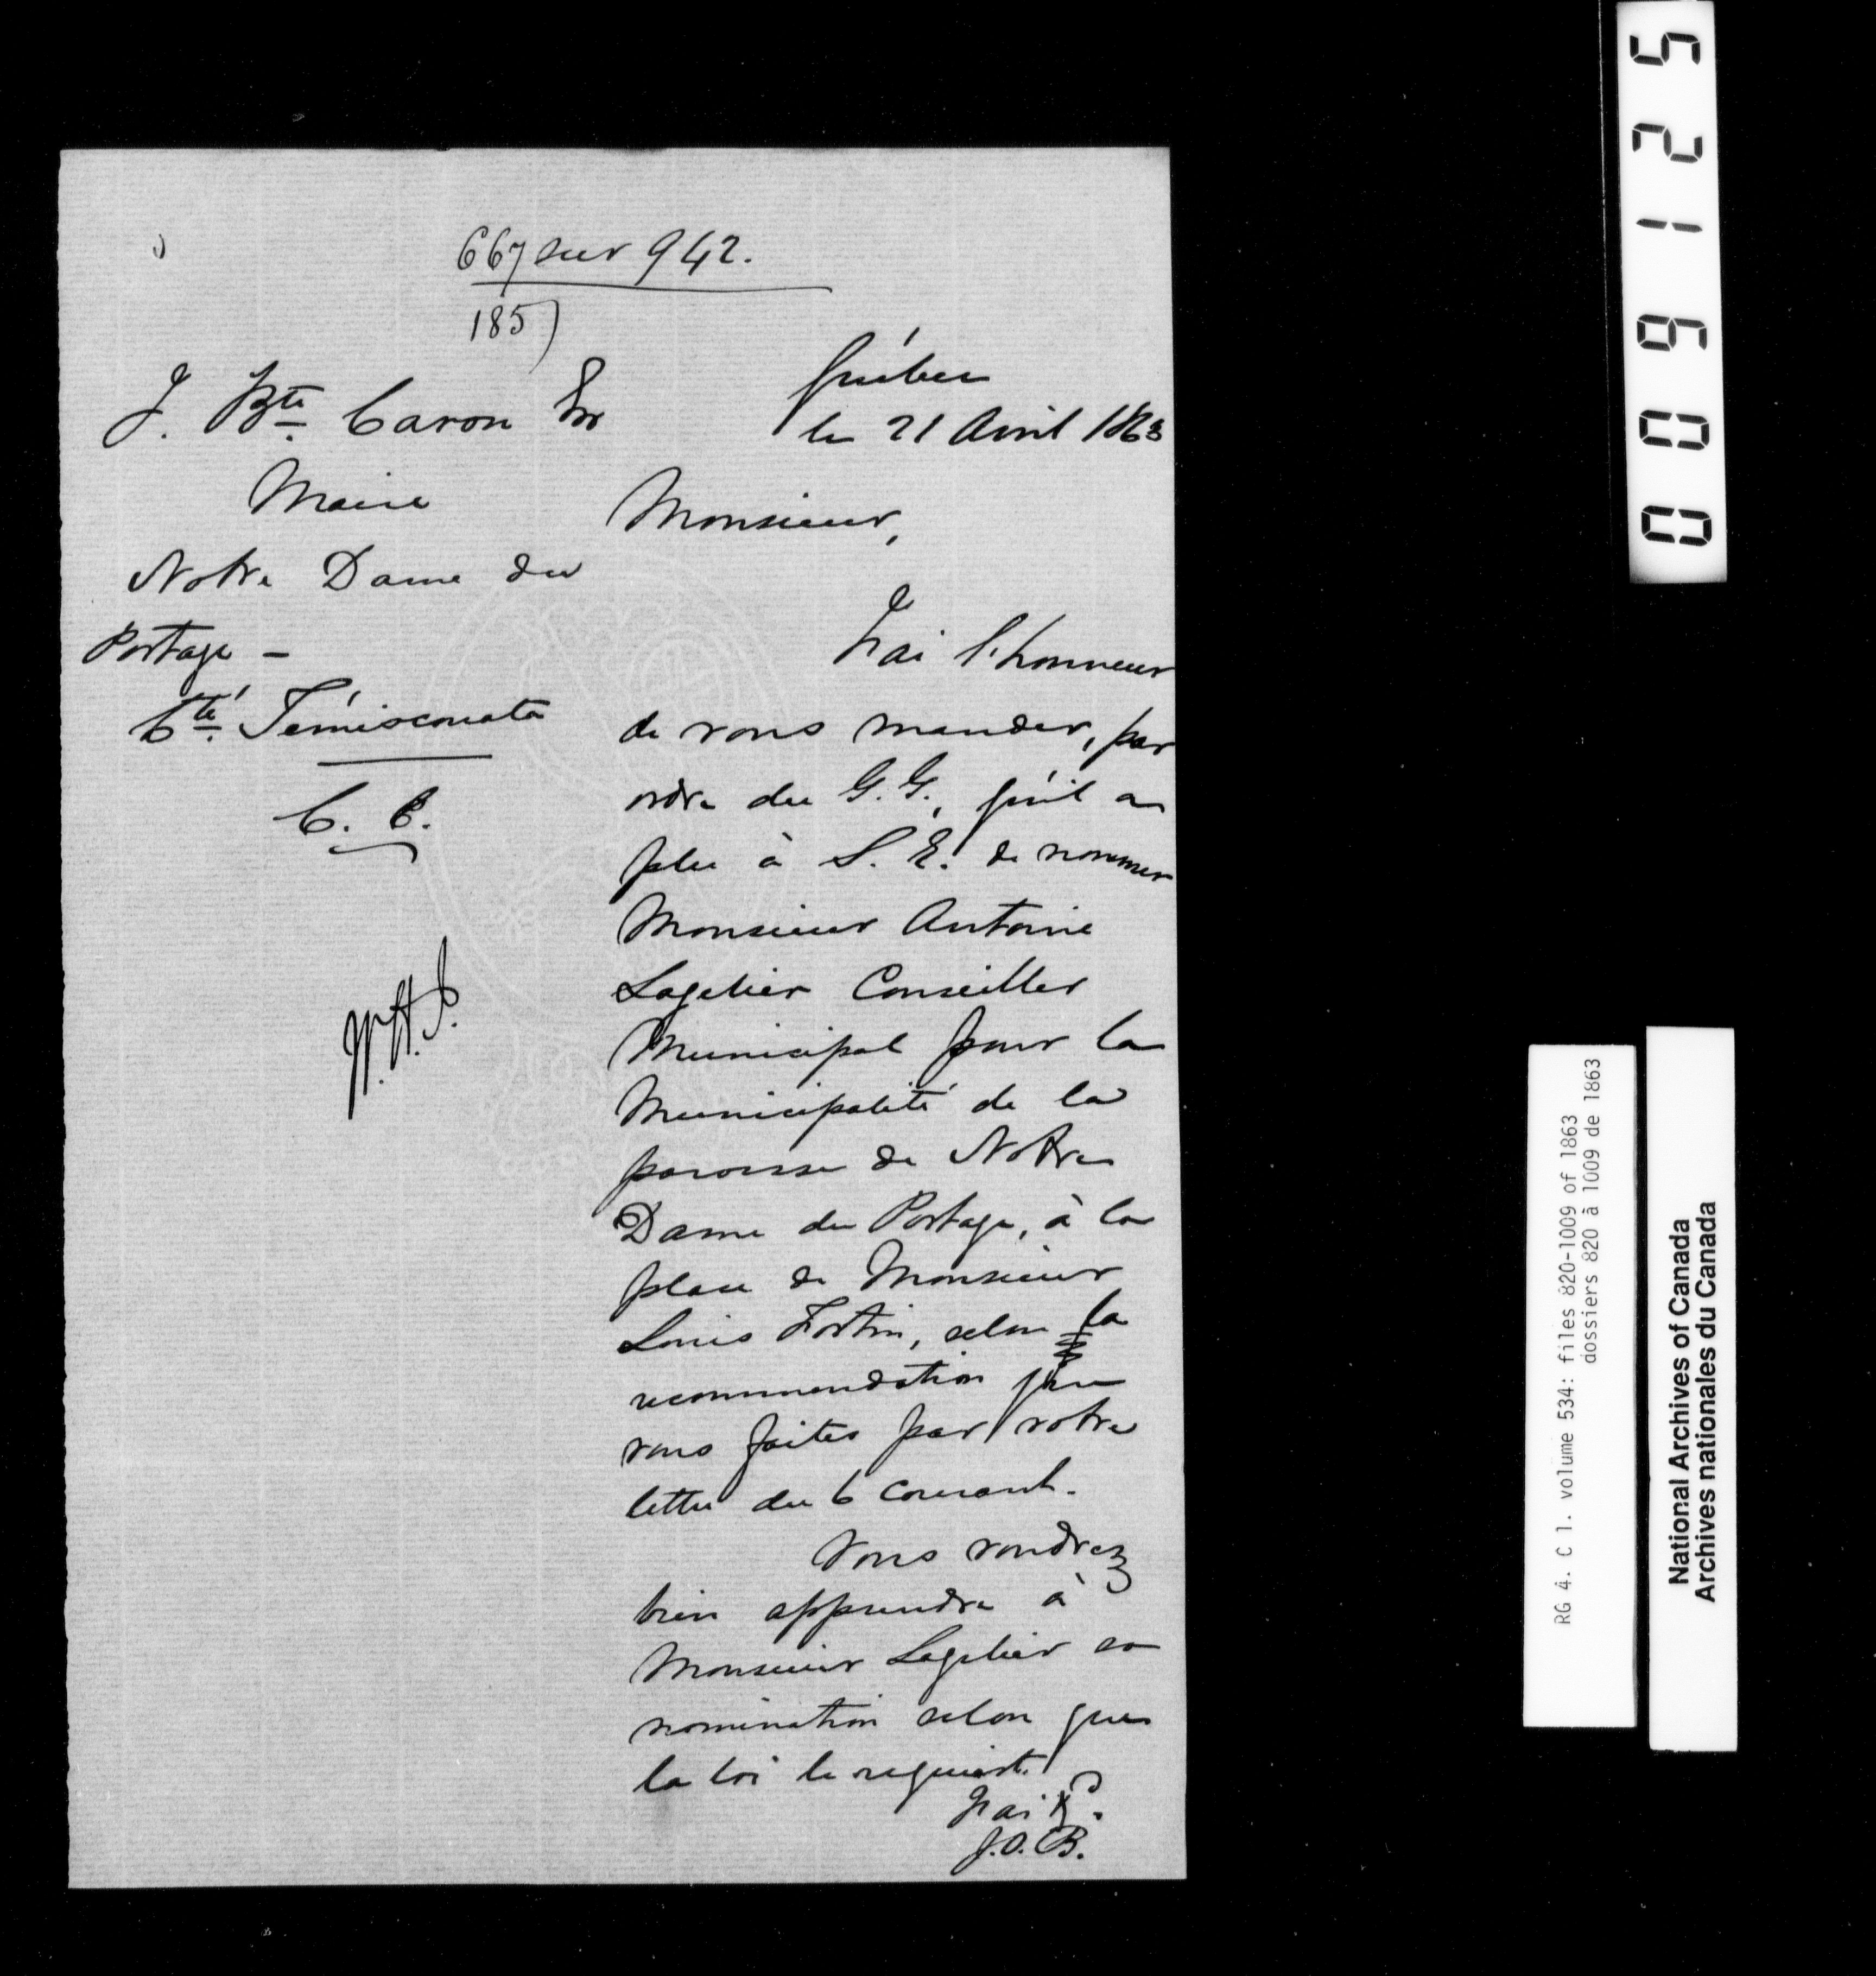 667 sur 942.
185)
J. Bte. Caron Esr
Maire
Notre Dame du
Portage -
Cté. Témiscouata
C. C.
Québec
le 21 Avril 1863
Monsieur,
J'ai l'honneur
de vous mander, par
ordre du G.G., qu'il a
plu à S. E. de nommer
Monsieur Antoine
Lagelier Conseiller
Municipal pour la
Municipalité de la
paroisse de Notre
Dame du Portage, à la
place de Monsieur
Louis Fortin, selon la
recommendation que
vous faites par votre
lettre du 6 courant.
Vous voudrez
bien apprendre à
Monsieur Lagelier sa
nomination selon que
la loi le requiert.
J'ai &.
J.O.B.
009125
RG 4. C 1. volume 534: files 820-1009 of 1863
dossiers 820 à 1009 de 1863
National Archives of Canada
Archives nationales du Canada